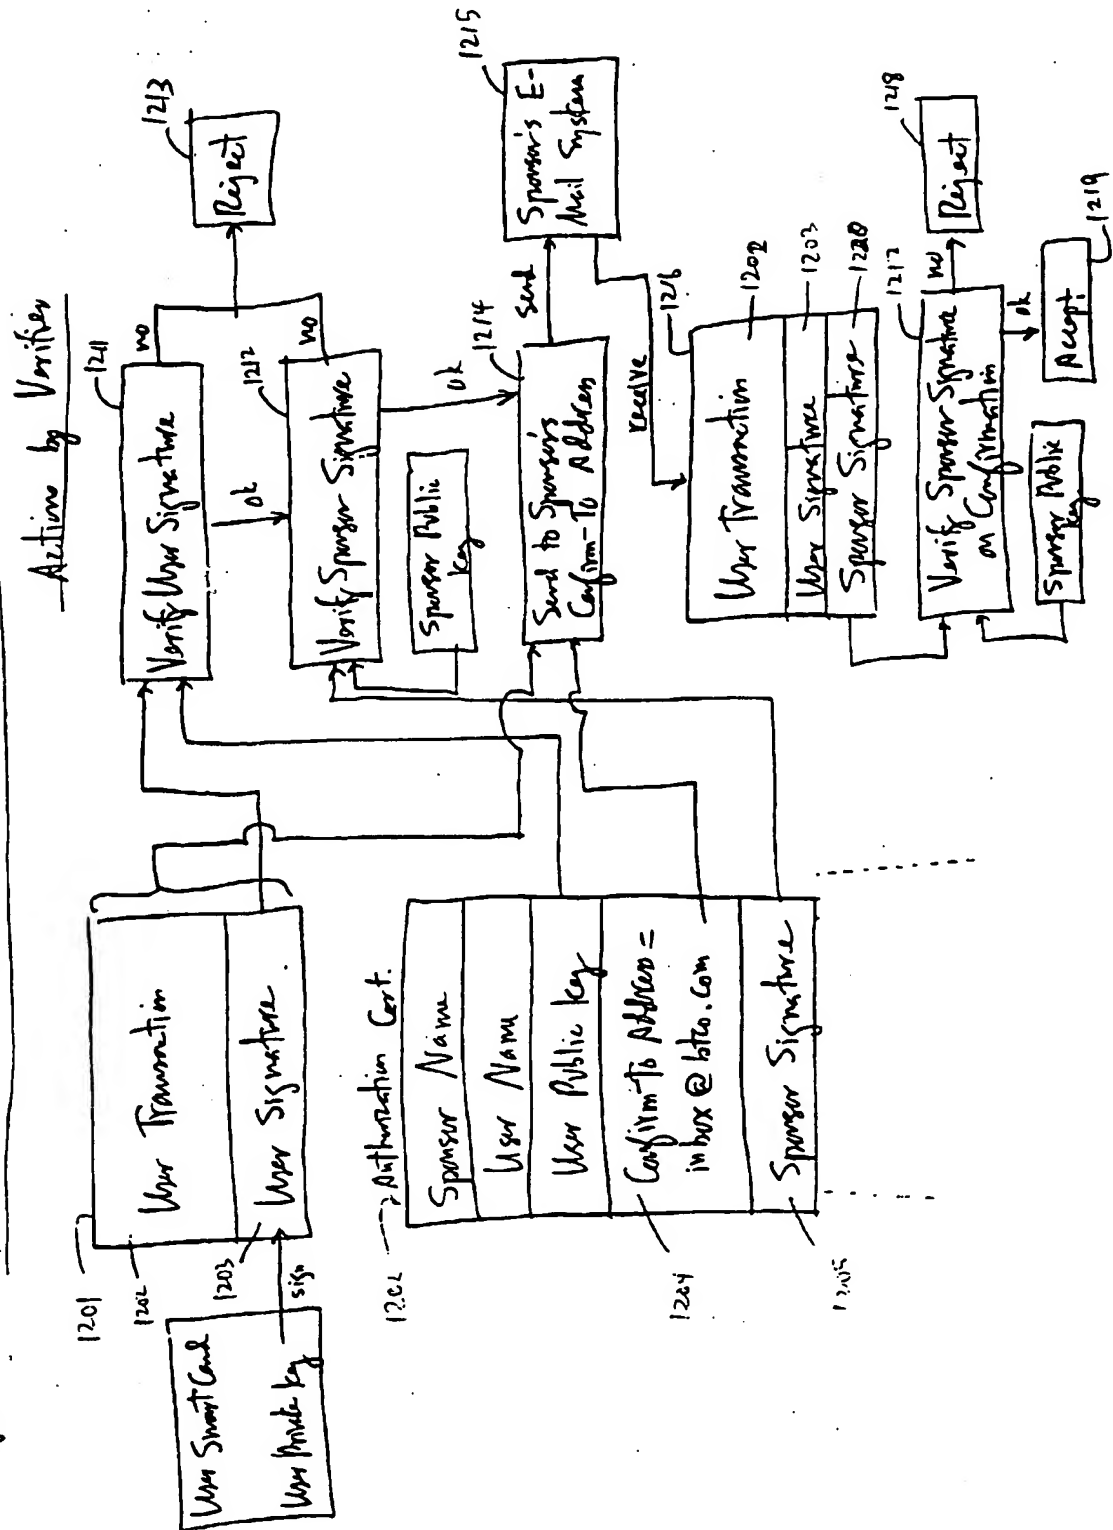 Action by Verifier
User Smart Card
User Private Key
sign
1201
1202
1203
User Transaction
User Signature
1202
Authorization Cert.
Sponsor Name
User Name
User Public Key
Confirm-To Address =
inbox@btco.com
Sponsor Signature
1204
1205
1211
Verify User Signature
no
ok
1212
Verify Sponsor Signature
no
1213
Reject
Sponsor Public
Key
ok
1214
Send to Sponsor's
Confirm-To Address
send
1215
Sponsor's E-
Mail System
receive
1216
User Transaction
1202
User Signature
1203
Sponsor Signature
1220
1217
Verify Sponsor Signature
on Confirmation
no
1218
Reject
ok
Sponsor Public
Key
Accept
1219